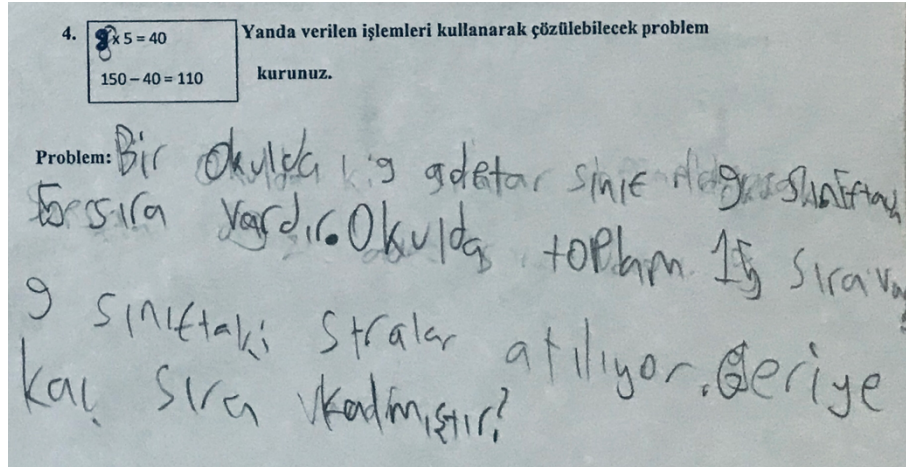 4. 8 x 5 = 40 Yanda verilen işlemleri kullanarak çözülebilecek problem
150 – 40 = 110 kurunuz.
Problem: Bir Okulda 9 adetar sınıf sınıftan
sıra vardır. Okulda toplam 15 sıra var
9 sınıftaki sıralar atılıyor. Geriye
kaç sıra kadmıştır?